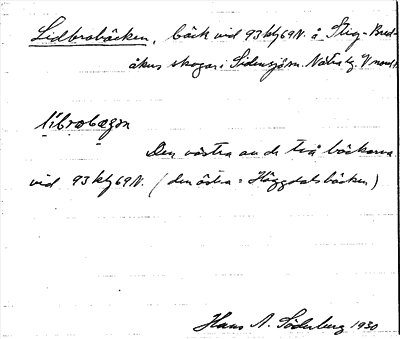 Lidbrobäcken, bäck vid 93 klg 69 N. å Stig-Bred-
åkers skogar i Sidensjö sn. Nätra tg. V norrl.
li'brobægen
Den västra av de två bäckarna
vid 93 klg 69 N. (den östra = Höggdalsbäcken)
Hans A. Söderberg 1930